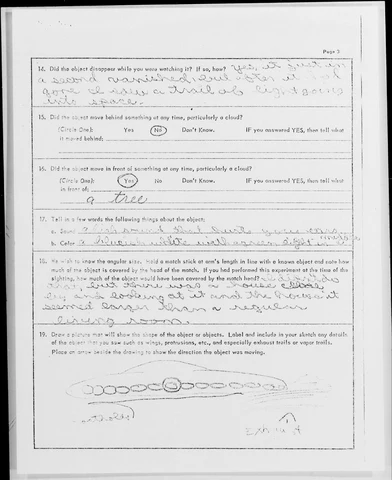 Page 3
14. Did the object disappear while you were watching it? If so, how? yes, it just in
a second vanished, but after it had
gone I saw a trail of light going
into space.
15. Did the object move behind something at any time, particularly a cloud?
(Circle One): Yes No Don't Know. IF you answered YES, then tell what
it moved behind:
16. Did the object move in front of something at any time, particularly a cloud?
(Circle One): Yes No Don't Know. IF you answered YES, then tell what
in front of:
a tree
17. Tell in a few words the following things about the object:
a. Sound a high sound that hurts your ears
b. Color a bluish white with a green light in
18. We wish to know the angular size. Hold a match stick at arm's length in line with a known object and note how
much of the object is covered by the head of the match. If you had performed this experiment at the time of the
sighting, how much of the object would have been covered by the match head?
that, but there was a house close
by and looking at it and the house it
seemed larger than a regular
living room.
19. Draw a picture that will show the shape of the object or objects. Label and include in your sketch any details
of the object that you saw such as wings, protrusions, etc., and especially exhaust trails or vapor trails.
Place an arrow beside the drawing to show the direction the object was moving.